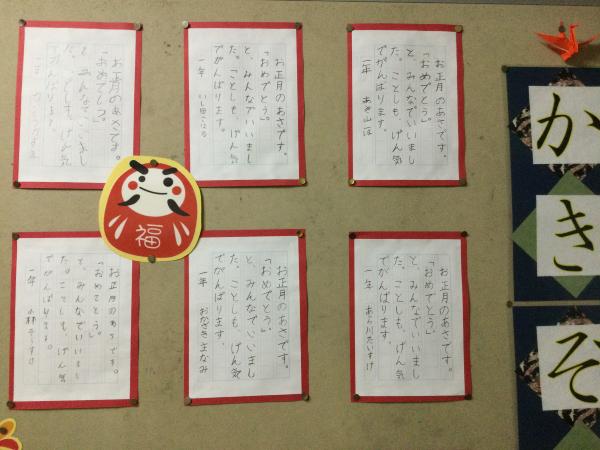 お正月のあさです。
「おめでとう」
と、みんなでいいまし
た。ことしも、げん気
でがんばります。
一年
お正月のあさです。
「おめでとう。」
と、みんなでいいまし
た。ことしも、げん気
でがんばります。
一年
お正月のあさです。
「おめでとう。」
と、みんなでいいまし
た。ことしも、げん気
でがんばります。
一年 あき山
福
お正月のあさです。
「おめでとう。」
と、みんなでいいまし
た。ことしも、げん気
でがんばります。
一年 小林そうすけ
お正月のあさです。
「おめでとう」
と、みんなでいいまし
た。ことしも、げん気
でがんばります。
一年 おかざきまなみ
お正月のあさです。
「おめでとう」
と、みんなでいいまし
た。ことしも、げん気
でがんばります。
一年 あら川たいすけ
かきぞ